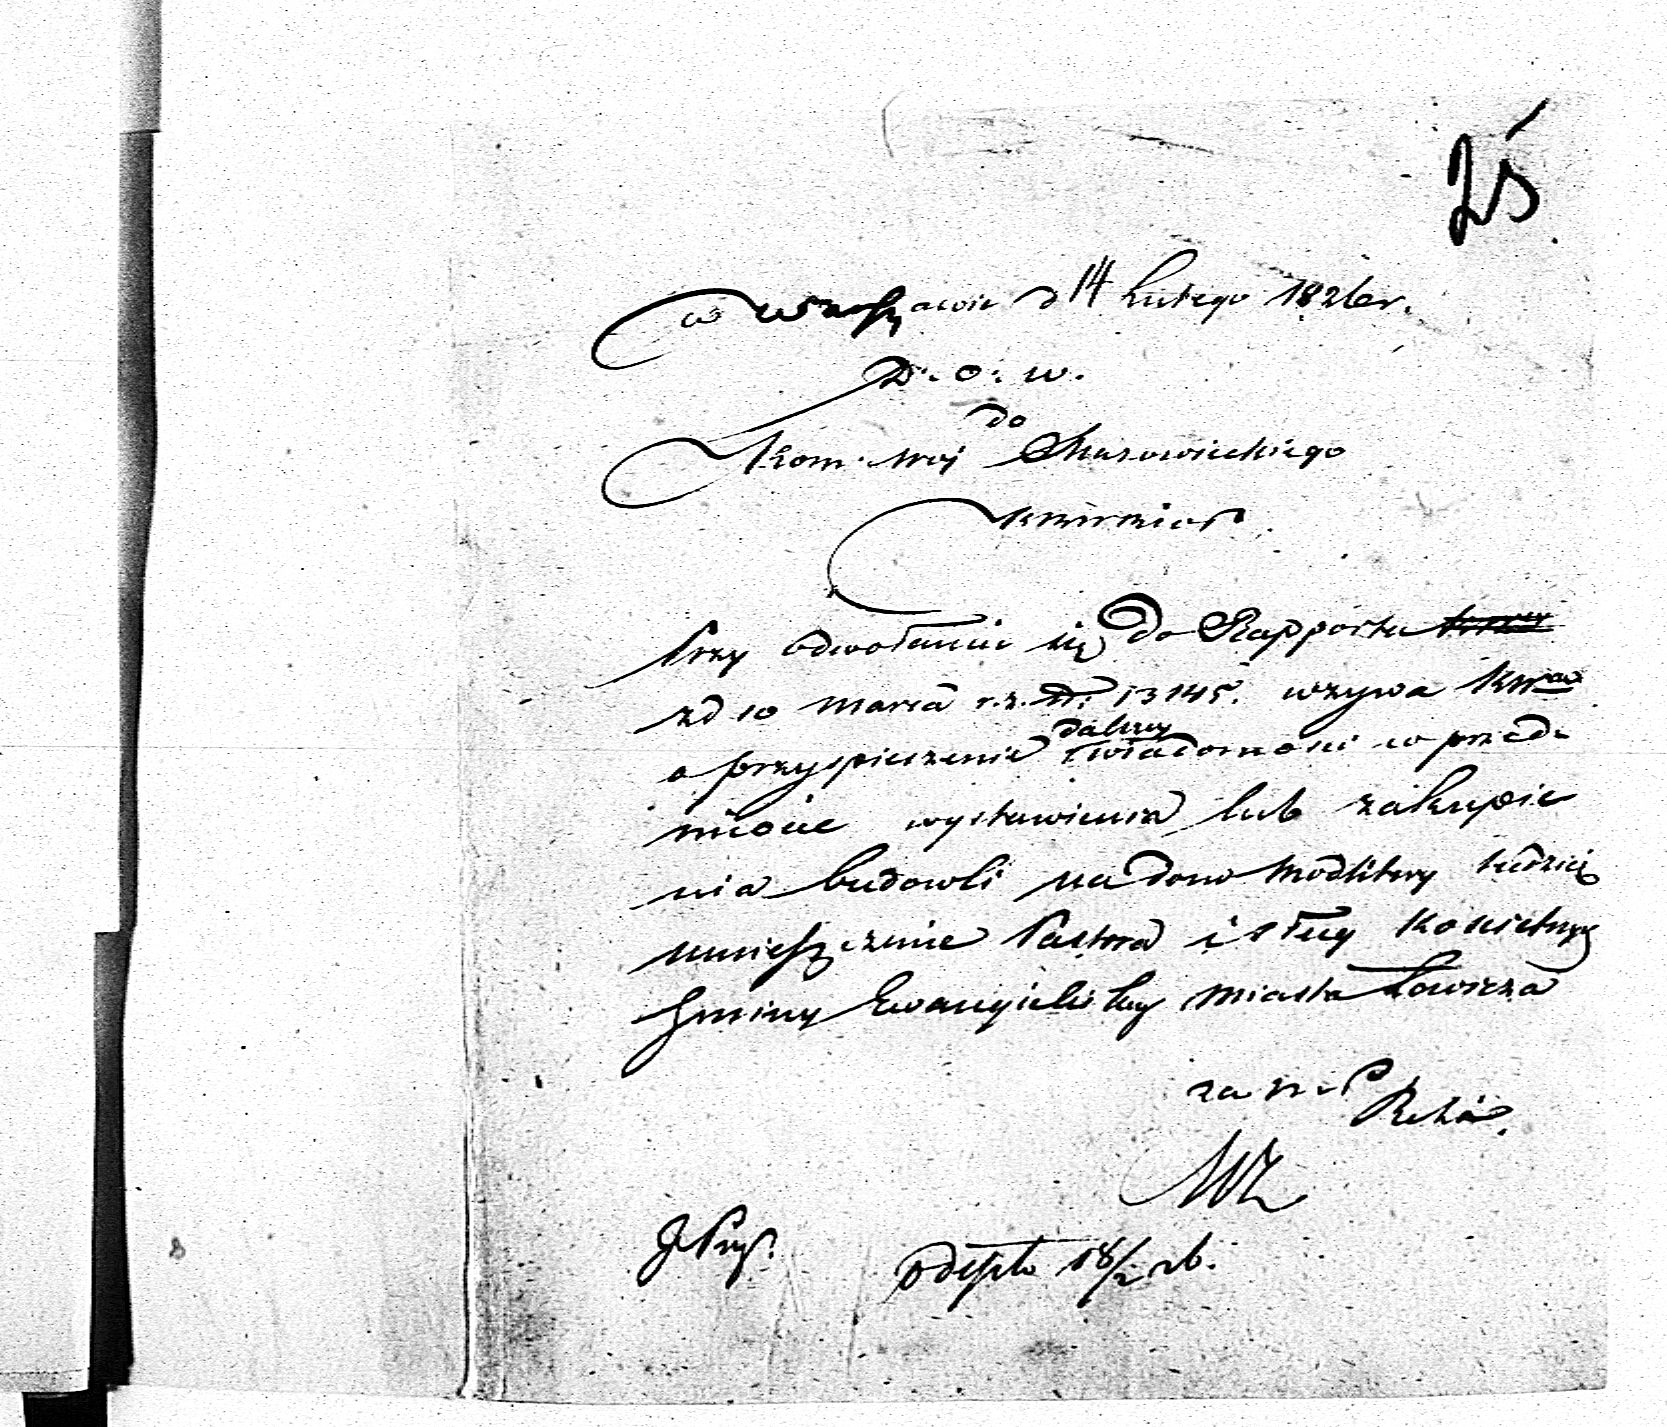 25
w Warszawie d 14 Lutego 1826 r.
D. O. W.
do
Kom: Woj Mazowieckiego
Przy odwołaniu się do Rapportu
z d 10 Marca r. z. N. 13145. wzywa
dalszey
o przyspieszenie wiadomości w przed-
miocie wystawienia lub zakupie
nia budowli na dom modlitwy tudzież
umieszczenie Pastora i sługi kościelnego
Gminy Ewangielickiey miasta Łowicza
odeszło 18/2 26.